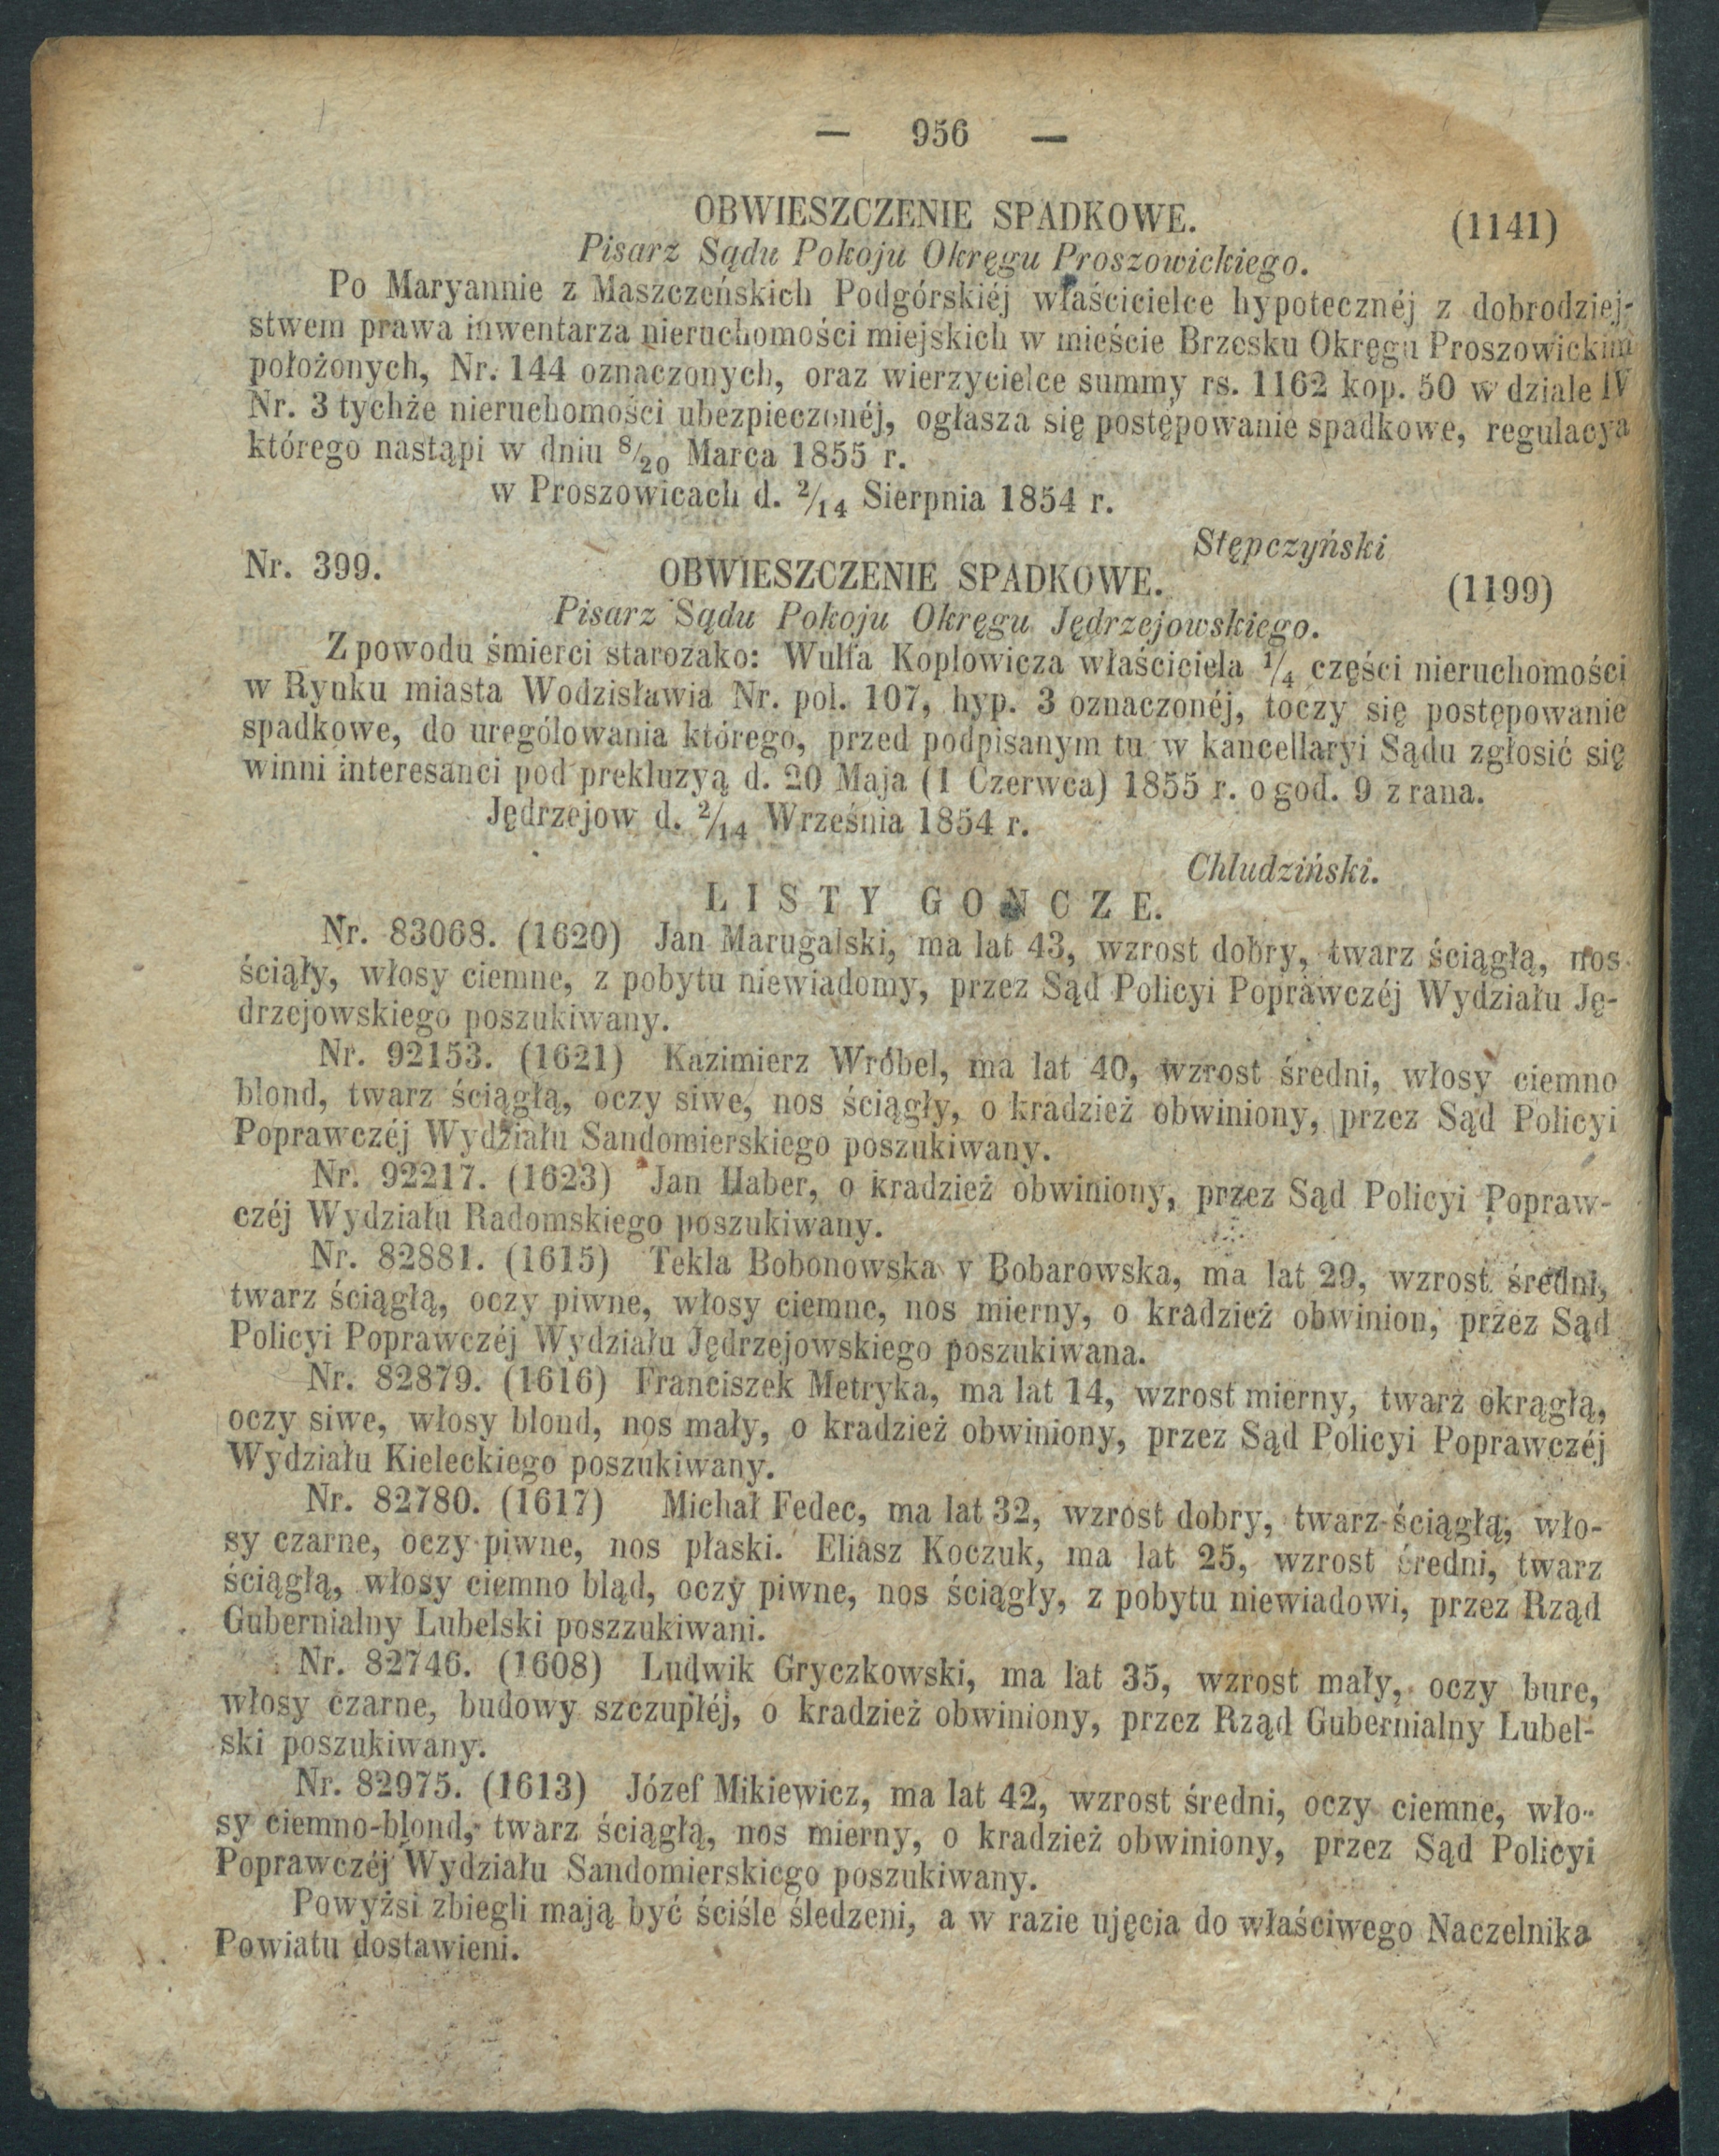 — 956 —
OBWIESZCZENIE SPADKOWE. (1141)
Pisarz Sądu Pokoju Okręgu Proszowickiego.
Po Maryannie z Maszczeńskich Podgórskiéj właścicielce hypotecznéj z dobrodziej-
stwem prawa inwentarza nieruchomości miejskich w mieście Brzesku Okręgu Proszowickim
położonych, Nr. 144 oznaczonych, oraz wierzycielce summy rs. 1162 kop. 50 w dziale IV
Nr. 3 tychże nieruchomości ubezpieczonéj, ogłasza się postępowanie spadkowe, regulacya
którego nastąpi w dniu 8/20 Marca 1855 r.
w Proszowicach d. 2/14 Sierpnia 1854 r.
Stępczyński
Nr. 399. OBWIESZCZENIE SPADKOWE. (1199)
Pisarz Sądu Pokoju Okręgu Jędrzejowskiego.
Z powodu śmierci starozako: Wulfa Koplowicza właściciela 1/4 części nieruchomości
w Rynku miasta Wodzisławia Nr. pol. 107, hyp. 3 oznaczonéj, toczy się postępowanie
spadkowe, do urególowania którego, przed podpisanym tu w kancellaryi Sądu zgłosić się
winni interesanci pod prekluzyą d. 20 Maja (1 Czerwca) 1855 r. o god. 9 z rana.
Jędrzejow d. 2/14 Września 1854 r.
Chludziński.
LISTY GONCZE.
Nr. 83068. (1620) Jan Marugalski, ma lat 43, wzrost dobry, twarz ściągłą, nos
ściąły, włosy ciemne, z pobytu niewiadomy, przez Sąd Policyi Poprawczéj Wydziału Ję-
drzejowskiego poszukiwany.
Nr. 92153. (1621) Kazimierz Wróbel, ma lat 40, wzrost średni, włosy ciemno
blond, twarz ściągłą, oczy siwe, nos ściągły, o kradzież obwiniony, przez Sąd Policyi
Poprawczéj Wydziału Sandomierskiego poszukiwany.
Nr. 92217. (1623) Jan Haber, o kradzież obwiniony, przez Sąd Policyi Popraw-
czéj Wydziału Radomskiego poszukiwany.
Nr. 82881. (1615) Tekla Bobonowska v Bobarowska, ma lat 29, wzrost średni,
twarz ściągłą, oczy piwne, włosy ciemne, nos mierny, o kradzież obwinion, przez Sąd
Policyi Poprawczéj Wydziału Jędrzejowskiego poszukiwana.
Nr. 82879. (1616) Franciszek Metryka, ma lat 14, wzrost mierny, twarz okrągłą,
oczy siwe, włosy blond, nos mały, o kradzież obwiniony, przez Sąd Policyi Poprawczéj
Wydziału Kieleckiego poszukiwany.
Nr. 82780. (1617) Michał Fedec, ma lat 32, wzrost dobry, twarz ściągłą, wło-
sy czarne, oczy piwne, nos płaski. Eliasz Koczuk, ma lat 25, wzrost średni, twarz
ściągłą, włosy ciemno bląd, oczy piwne, nos ściągły, z pobytu niewiadowi, przez Rząd
Gubernialny Lubelski poszzukiwani.
Nr. 82746. (1608) Ludwik Gryczkowski, ma lat 35, wzrost mały, oczy bure,
włosy czarne, budowy szczupłéj, o kradzież obwiniony, przez Rząd Gubernialny Lubel-
ski poszukiwany.
Nr. 82975. (1613) Józef Mikiewicz, ma lat 42, wzrost średni, oczy ciemne, wło-
sy ciemno-blond, twarz ściągłą, nos mierny, o kradzież obwiniony, przez Sąd Policyi
Poprawczéj Wydziału Sandomierskiego poszukiwany.
Powyżsi zbiegli mają być ściśle śledzeni, a w razie ujęcia do właściwego Naczelnika
Powiatu dostawieni.